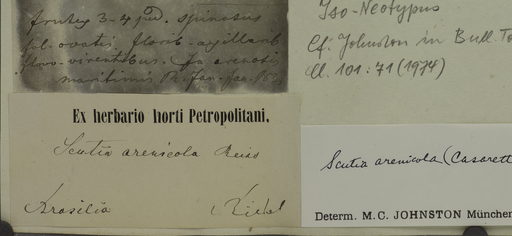 frutex 3-4 ped. spinosus
fol. ovatis florib. axillarib.
flavo-virentibus. In arenosis
maritimis
Iso-Neotypus
Cf. Johnston in Bull. To
Cl. 101: 71 (1974)
Ex herbario horti Petropolitani.
Scutia arenicola Reiss
Brasilia
Riedel
Scutia arenicola (Casarett
Determ. M. C. JOHNSTON München